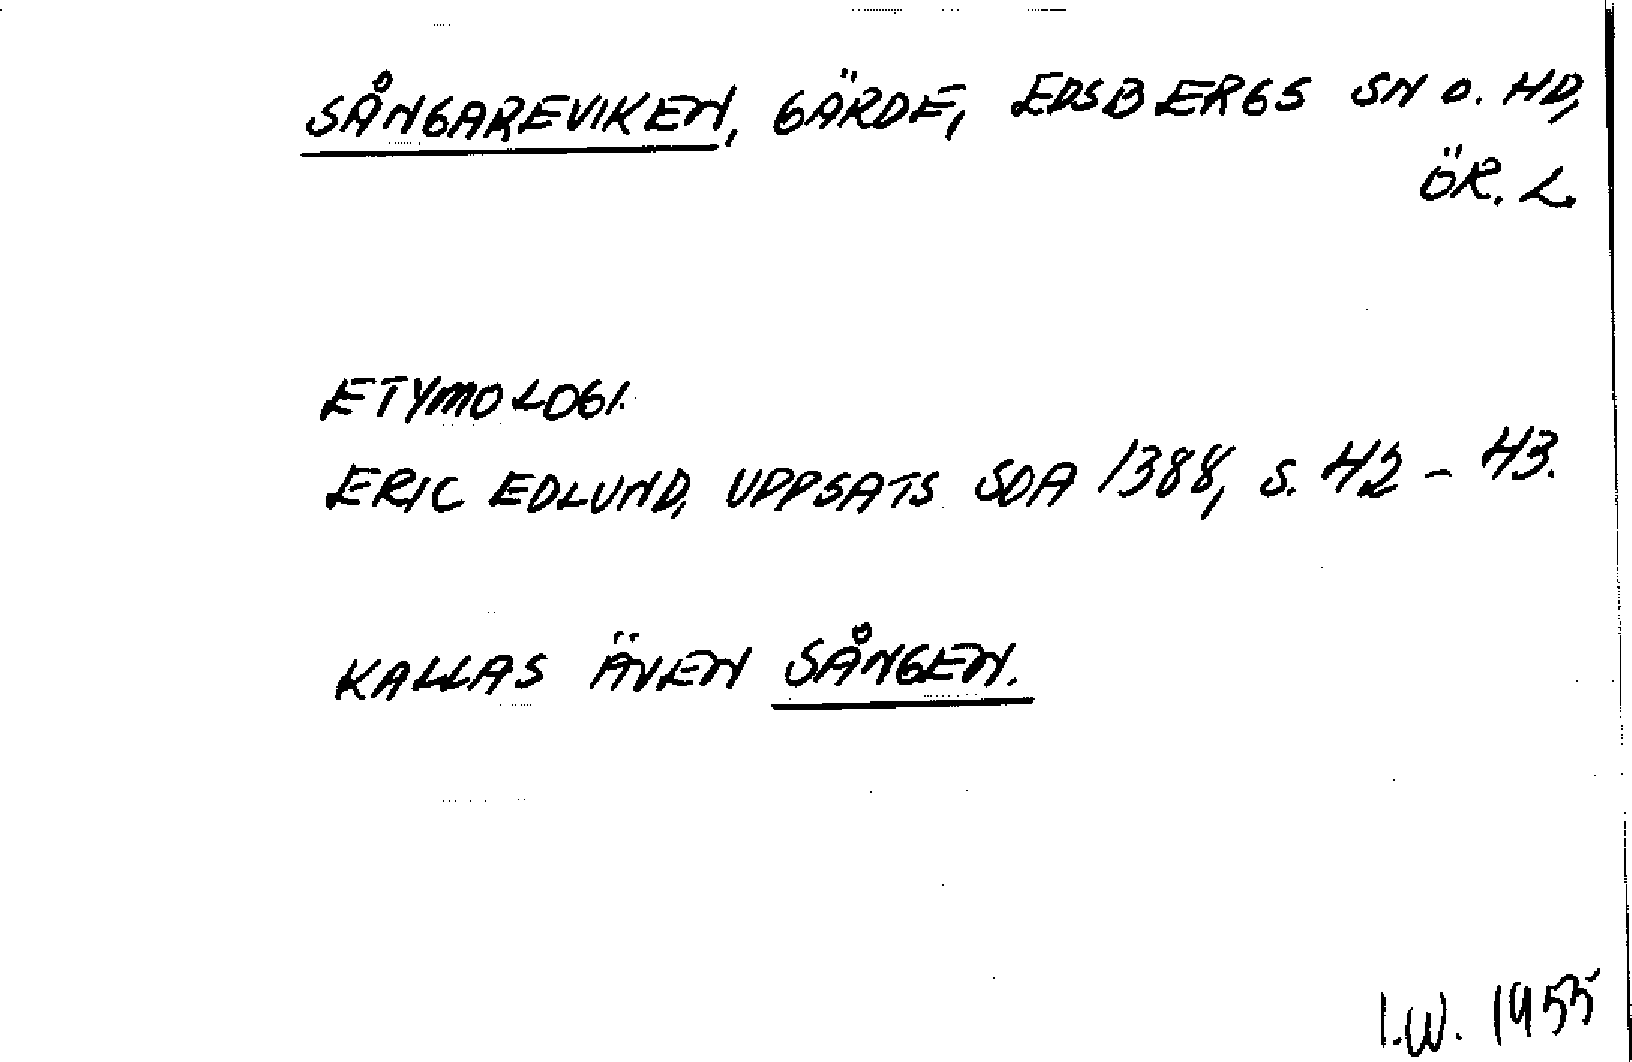 SÅNGAREVIKEN, GÄRDE, EDSBERGS SN O. HD,
ÖR. L.
ETYMOLOGI.
ERIC EDLUND, UPPSATS SOA 1388, S. 42 - 43.
KALLAS ÄVEN SÅNGEN.
I.W. 1955